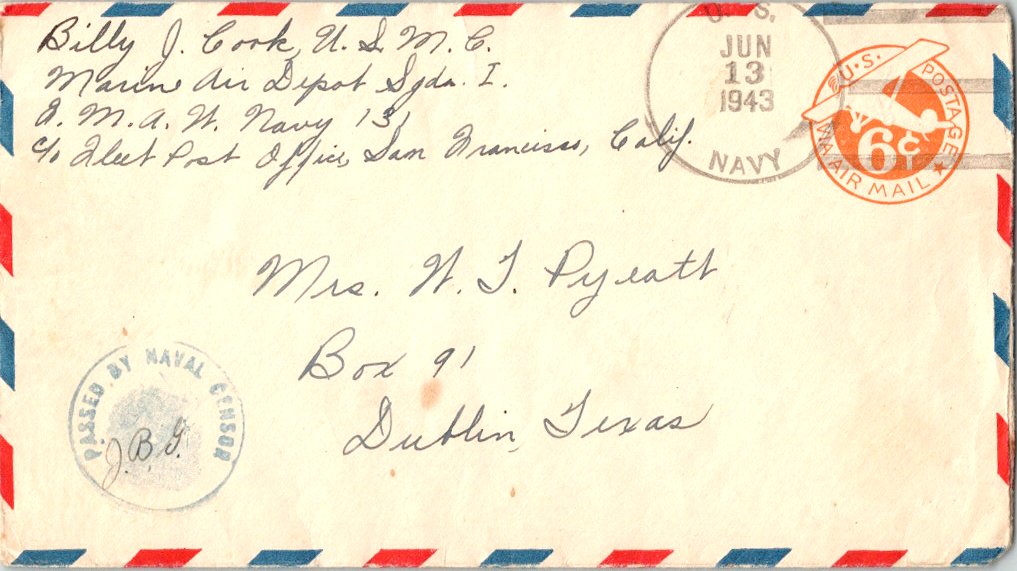 Billy J. Cook, U.S.M.C.
Marine Air Depot Sqdn. I.
2. M.A.W. Navy 131
c/o Fleet Post Office, San Francisco, Calif.
U.S.
JUN
13
1943
NAVY
U.S. POSTAGE
6¢
VIA AIR MAIL
Mrs. W. T. Pyeatt
Box 91
Dublin, Texas
PASSED BY NAVAL CENSOR
J.B.G.